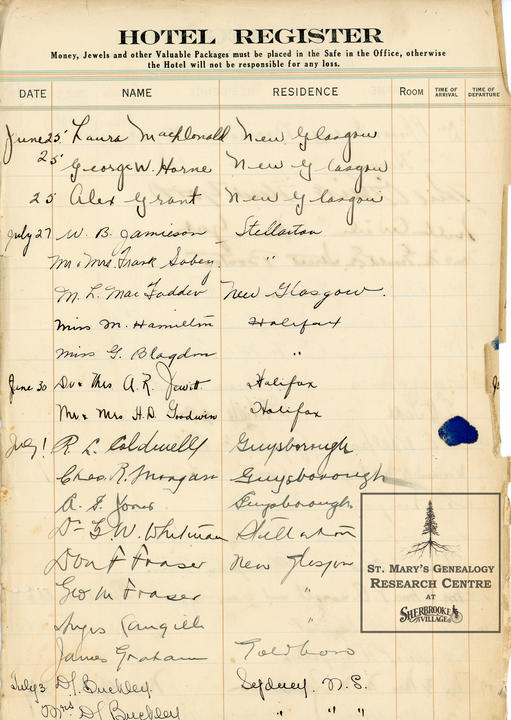 HOTEL REGISTER
Money, Jewels and other Valuable Packages must be placed in the Safe in the Office, otherwise
the Hotel will not be responsible for any loss.
DATE NAME RESIDENCE ROOM TIME OF ARRIVAL TIME OF DEPARTURE
June 25 Laura MacDonald New Glasgow
25 George W. Horne New Glasgow
25 Alex Grant New Glasgow
July 27 W. B. Jamieson Stellarton
Mr & Mrs. Frank Sobey "
M. L. MacFadden New Glasgow.
Miss M. Hamilton Halifax
Miss G. Blagdon "
June 30 Dr & Mrs A. R. Jewitt Halifax
Mr & Mrs H. D. Goodwin Halifax
July 1 R. L. Coldwell Guysborough
Chas. R. Morgan Guysborough
A. S. Jones Guysborough
Dr F. W. Whitman Stellarton
Don F Fraser New Glasgow
Geo M Fraser "
Angus "
James Graham Goldboro
July 3 D. Buckley. Sydney. N.S.
Mrs D Buckley " " "
ST. MARY'S GENEALOGY
RESEARCH CENTRE
AT
SHERBROOKE
VILLAGE